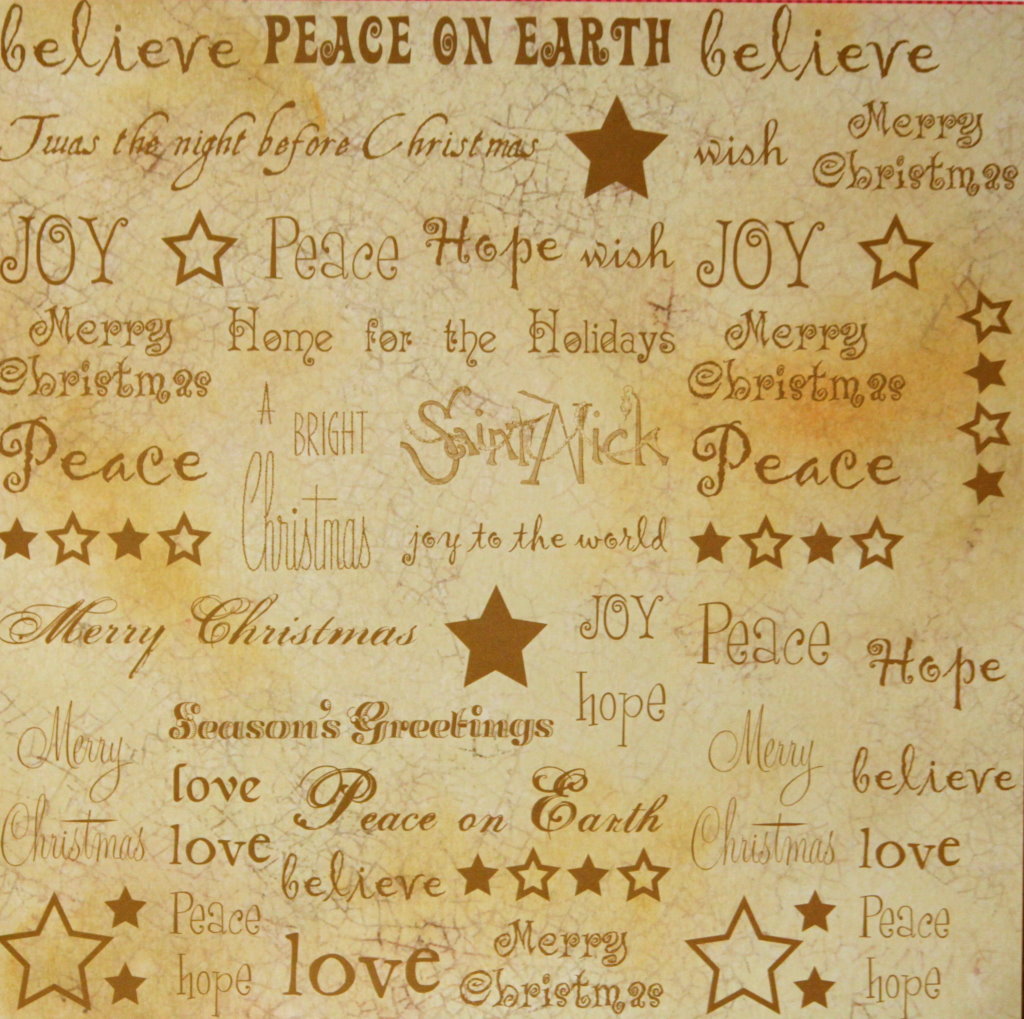 believe PEACE ON EARTH believe
Twas the night before Christmas wish Merry
Christmas
JOY Peace Hope wish JOY
Merry Home for the Holidays Merry
Christmas Christmas
A
BRIGHT Saint Nick
Peace Peace
Christmas joy to the world
Merry Christmas JOY Peace Hope
hope
Merry Season's Greetings Merry
love believe
Christmas Peace on Earth Christmas
love love
believe
Peace Peace
Merry
hope love Christmas hope